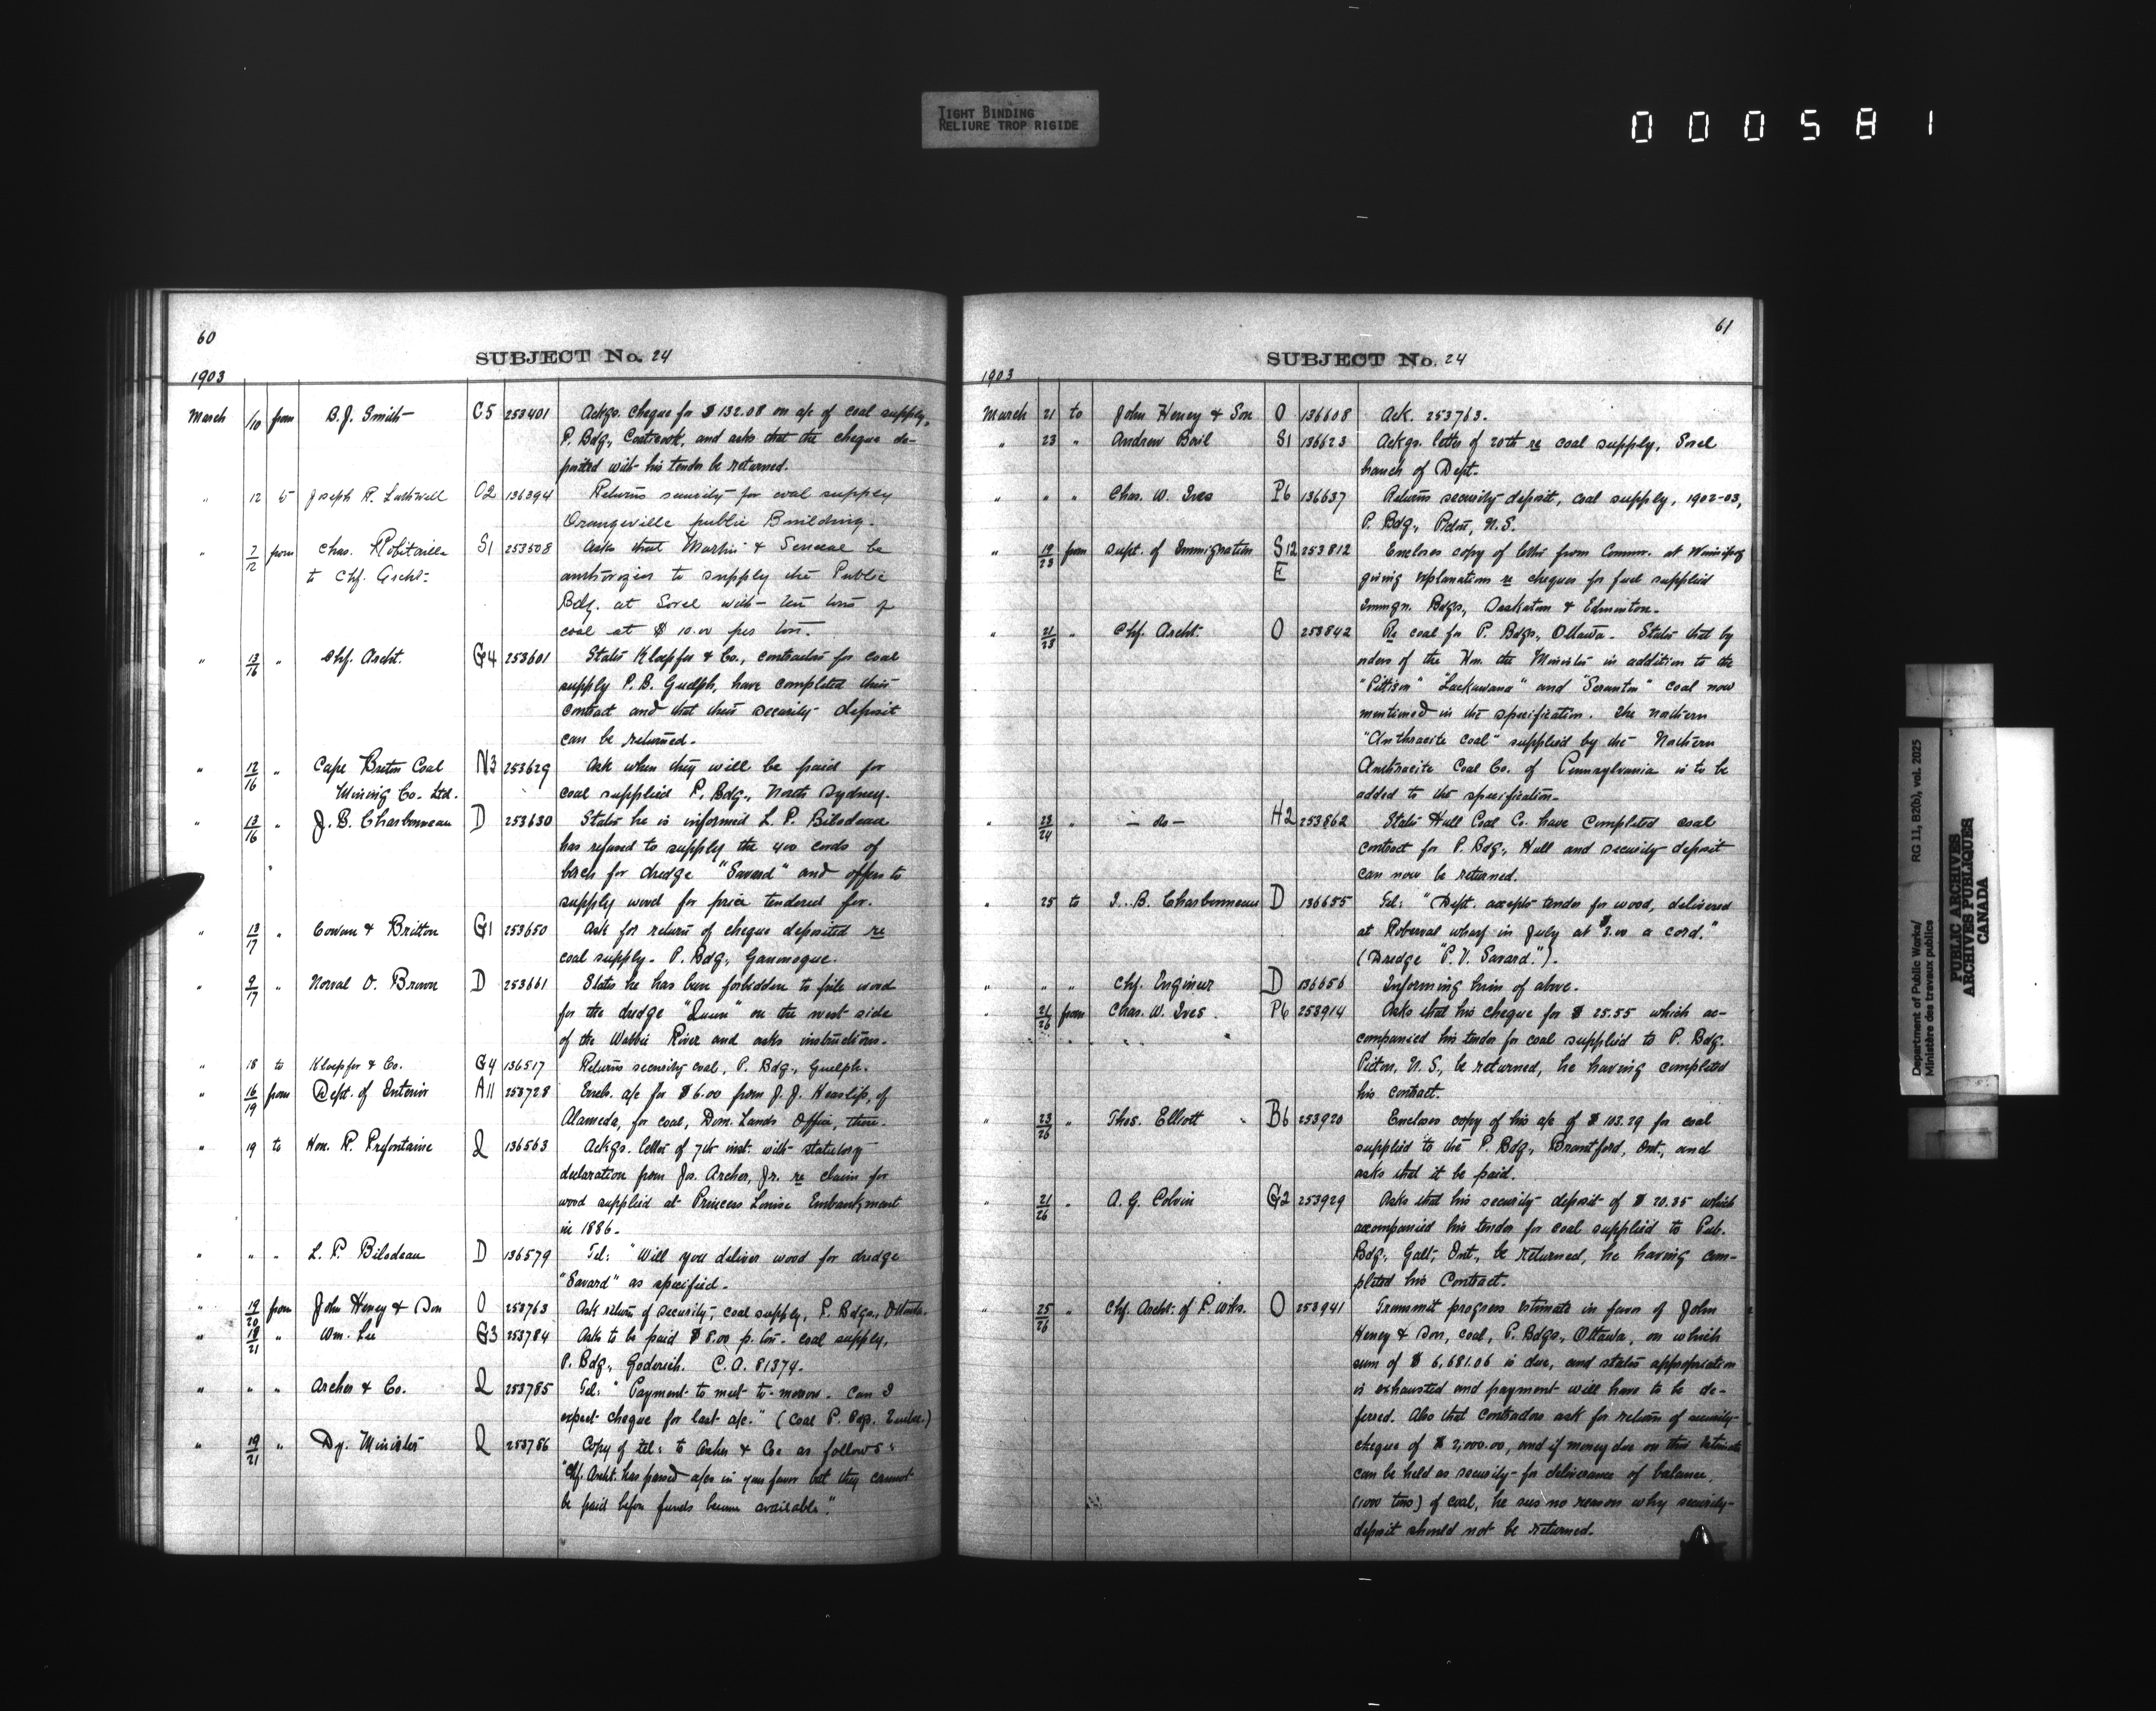 TIGHT BINDING
RELIURE TROP RIGIDE
000581
60
SUBJECT No. 24
1903
March 1/10 from B. J. Smith C5 253401 Ackgs. cheque for $132.08 on a/c of coal supply,
P. Bdg., Coaticook, and asks that the cheque de-
posited with his tender be returned.
" 12 to Joseph R. O2 136394 Returns security for coal supply
Orangeville public Building.
" 7/12 from Chas. Robitaille S1 253508 Asks that Martin & Seneca be
to Chf. Archt. to supply the Public
Bdg. at Sorel with ten tons of
coal at $10.00 per ton.
" 13/16 " Chf. Archt. G4 253601 States Kloepfer & Co., contractors for coal
supply P. B. Guelph, have completed their
contract and that their security deposit
can be returned.
" 12/16 " Cape Breton Coal N3 253629 Ask when they will be paid for
Mining Co. Ltd. coal supplied P. Bdg., North Sydney.
" 13/16 " J. B. Charbonneau D 253630 States he is informed L. P. Bilodeau
has refused to supply the 400 cords of
birch for dredge "Savard" and offers to
supply wood for price tendered for.
" 13/17 " Cowan & Britton G1 253650 Ask for return of cheque deposited re
coal supply. P. Bdg., Gananoque.
" 9/17 " Norval O. Brown D 253661 States he has been forbidden to pile wood
for the dredge "Queen" on the west side
of the Wabbie River and asks instructions.
" 18 to Kloepfer & Co. G4 136517 Returns security coal, P. Bdg., Guelph.
" 16/19 from Dept. of Interior A11 253728 Encls. a/c for $6.00 from J. J. Heaslip, of
Alameda, for coal, Dom. Lands Office, there.
" 19 to Hon. R. Prefontaine Q 136563 Ackgs. letter of 7th inst. with statutory
declaration from Jos. Archer, Jr. re claim for
wood supplied at Princess Louise Embankment
in 1886.
" " " L. P. Bilodeau D 136579 Tel: "Will you deliver wood for dredge
"Savard" as specified.
" 19/20 from John Heney & Son O 253763 Ask return of security, coal supply, P. Bdgs., Ottawa.
" 18/21 " Wm. Lee G3 253784 Asks to be paid $8.00 p. ton. coal supply,
P. Bdg., Goderich. C.A. 81374.
" " " Archer & Co. Q 253785 Tel: "Payment to meet to-morrow. Can I
expect cheque for last a/c." (Coal P. Bdgs. Quebec.)
" 19/21 " Dy. Minister Q 253786 Copy of tel: to Archer & Co. as follows:
"Chf. Archt. has passed a/cs in your favor but they cannot
be paid before funds become available."
61
SUBJECT No. 24
1903
March 21 to John Heney & Son O 136608 Ack. 253763.
" 23 " Andrew Bail S1 136623 Ackgs. letter of 20th re coal supply, Sorel
branch of Dept.
" " " Chas. W. Ives P6 136637 Returns security deposit, coal supply, 1902-03,
P. Bdg., Pictou, N.S.
" 19/23 from Supt. of Immigration S12 253812 Encloses copy of letter from Commr. at Winnipeg
E giving explanations re cheques for fuel supplied
Immgn. Bdgs., Saskatoon & Edmonton.
" 21/23 " Chf. Archt. O 253842 Re coal for P. Bdgs., Ottawa. States that by
orders of the Hon. the Minister in addition to the
"Pittson" "Lackawana" and "Scranton" coal now
mentioned in the specification. The northern
"Anthracite Coal" supplied by the Northern
Anthracite Coal Co. of Pennsylvania is to be
added to the specification.
" 23/24 " - do - H2 253862 States Hull Coal Co. have completed coal
contract for P. Bdg., Hull and security deposit
can now be returned.
" 25 to J. B. Charbonneau D 136655 Tel: "Dept. accepts tender for wood, delivered
at Roberval wharf in July at $3.00 a cord."
(Dredge "P. V. Savard.").
" " " Chf. Engineer D 136656 Informing him of above.
" 24/26 from Chas. W. Ives P6 253914 Asks that his cheque for $25.55 which ac-
companied his tender for coal supplied to P. Bdg.
Pictou, N.S., be returned, he having completed
his contract.
" 23/26 " Thos. Elliott B6 253920 Encloses copy of his a/c of $103.29 for coal
supplied to the P. Bdg., Brantford, Ont., and
asks that it be paid.
" 21/26 " A. G. Colvin G2 253929 Asks that his security deposit of $20.35 which
accompanied his tender for coal supplied to Pub.
Bdg., Galt, Ont., be returned, he having com-
pleted his Contract.
" 25/26 " Chf. Archt. of P. Wks. O 253941 Transmit progress estimate in favor of John
Heney & Son, coal, P. Bdgs., Ottawa, on which
sum of $6,681.06 is due, and states appropriation
is exhausted and payment will have to be de-
ferred. Also that contractors ask for return of security
cheque of $2,000.00, and if money due on this estimate
can be held as security for deliverance of balance,
(1000 tons) of coal, he sees no reason why security
deposit should not be returned.
Department of Public Works/ RG 11, B2(b), vol. 2025
Ministère des travaux publics
PUBLIC ARCHIVES
ARCHIVES PUBLIQUES
CANADA